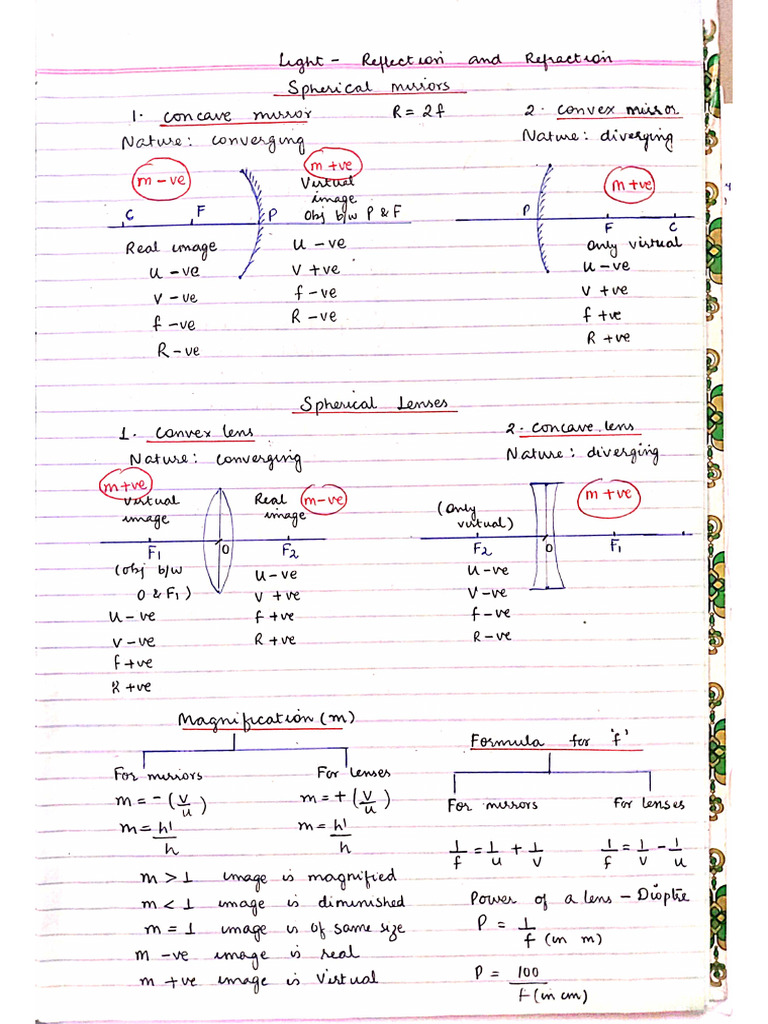 Light - Reflection and Refraction
Spherical mirrors
1. Concave mirror
R = 2f
Nature: converging
m -ve
m +ve
Virtual
image
Obj b/w P & F
C
F
P
Real image
u -ve
v -ve
f -ve
R -ve
u -ve
v +ve
f -ve
R -ve
2. Convex mirror
Nature: diverging
m +ve
P
F
C
Only virtual
u -ve
v +ve
f +ve
R +ve
Spherical Lenses
1. Convex lens
Nature: converging
m +ve
Virtual
image
Real
image
m -ve
F1
O
F2
(Obj b/w
O & F1)
u -ve
v -ve
f +ve
R +ve
u -ve
v +ve
f +ve
R +ve
2. Concave lens
Nature: diverging
(Only
virtual)
m +ve
F2
O
F1
u -ve
v -ve
f -ve
R -ve
Magnification (m)
For mirrors
m = - (v/u)
m = h'/h
For lenses
m = + (v/u)
m = h'/h
m > 1 image is magnified
m < 1 image is diminished
m = 1 image is of same size
m -ve image is real
m +ve image is virtual
Formula for 'f'
For mirrors
1/f = 1/u + 1/v
For lenses
1/f = 1/v - 1/u
Power of a lens - Dioptre
P = 1/f (in m)
P = 100/f (in cm)